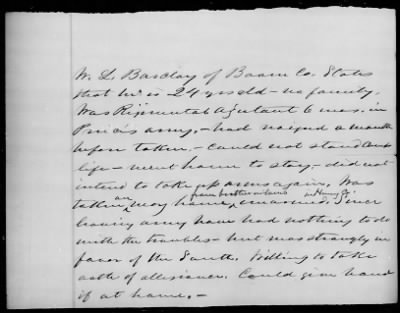 W. L. Barclay of Boone Co. States
that he is 24 yrs old - no family.
Was Regimental Agutant 6 mos. in
Price's army, - had resigned a month
before taken. - Could not stand camp
life - went home to stay, - did not
intend to take up arms again. Was
taken on way home, from brother-in-laws in Henry Co. unarmed. Since
leaving army have had nothing to do
with the troubles - but was strongly in
favor of the South. Willing to take
oath of allegiance. Could give bond
if at home. -